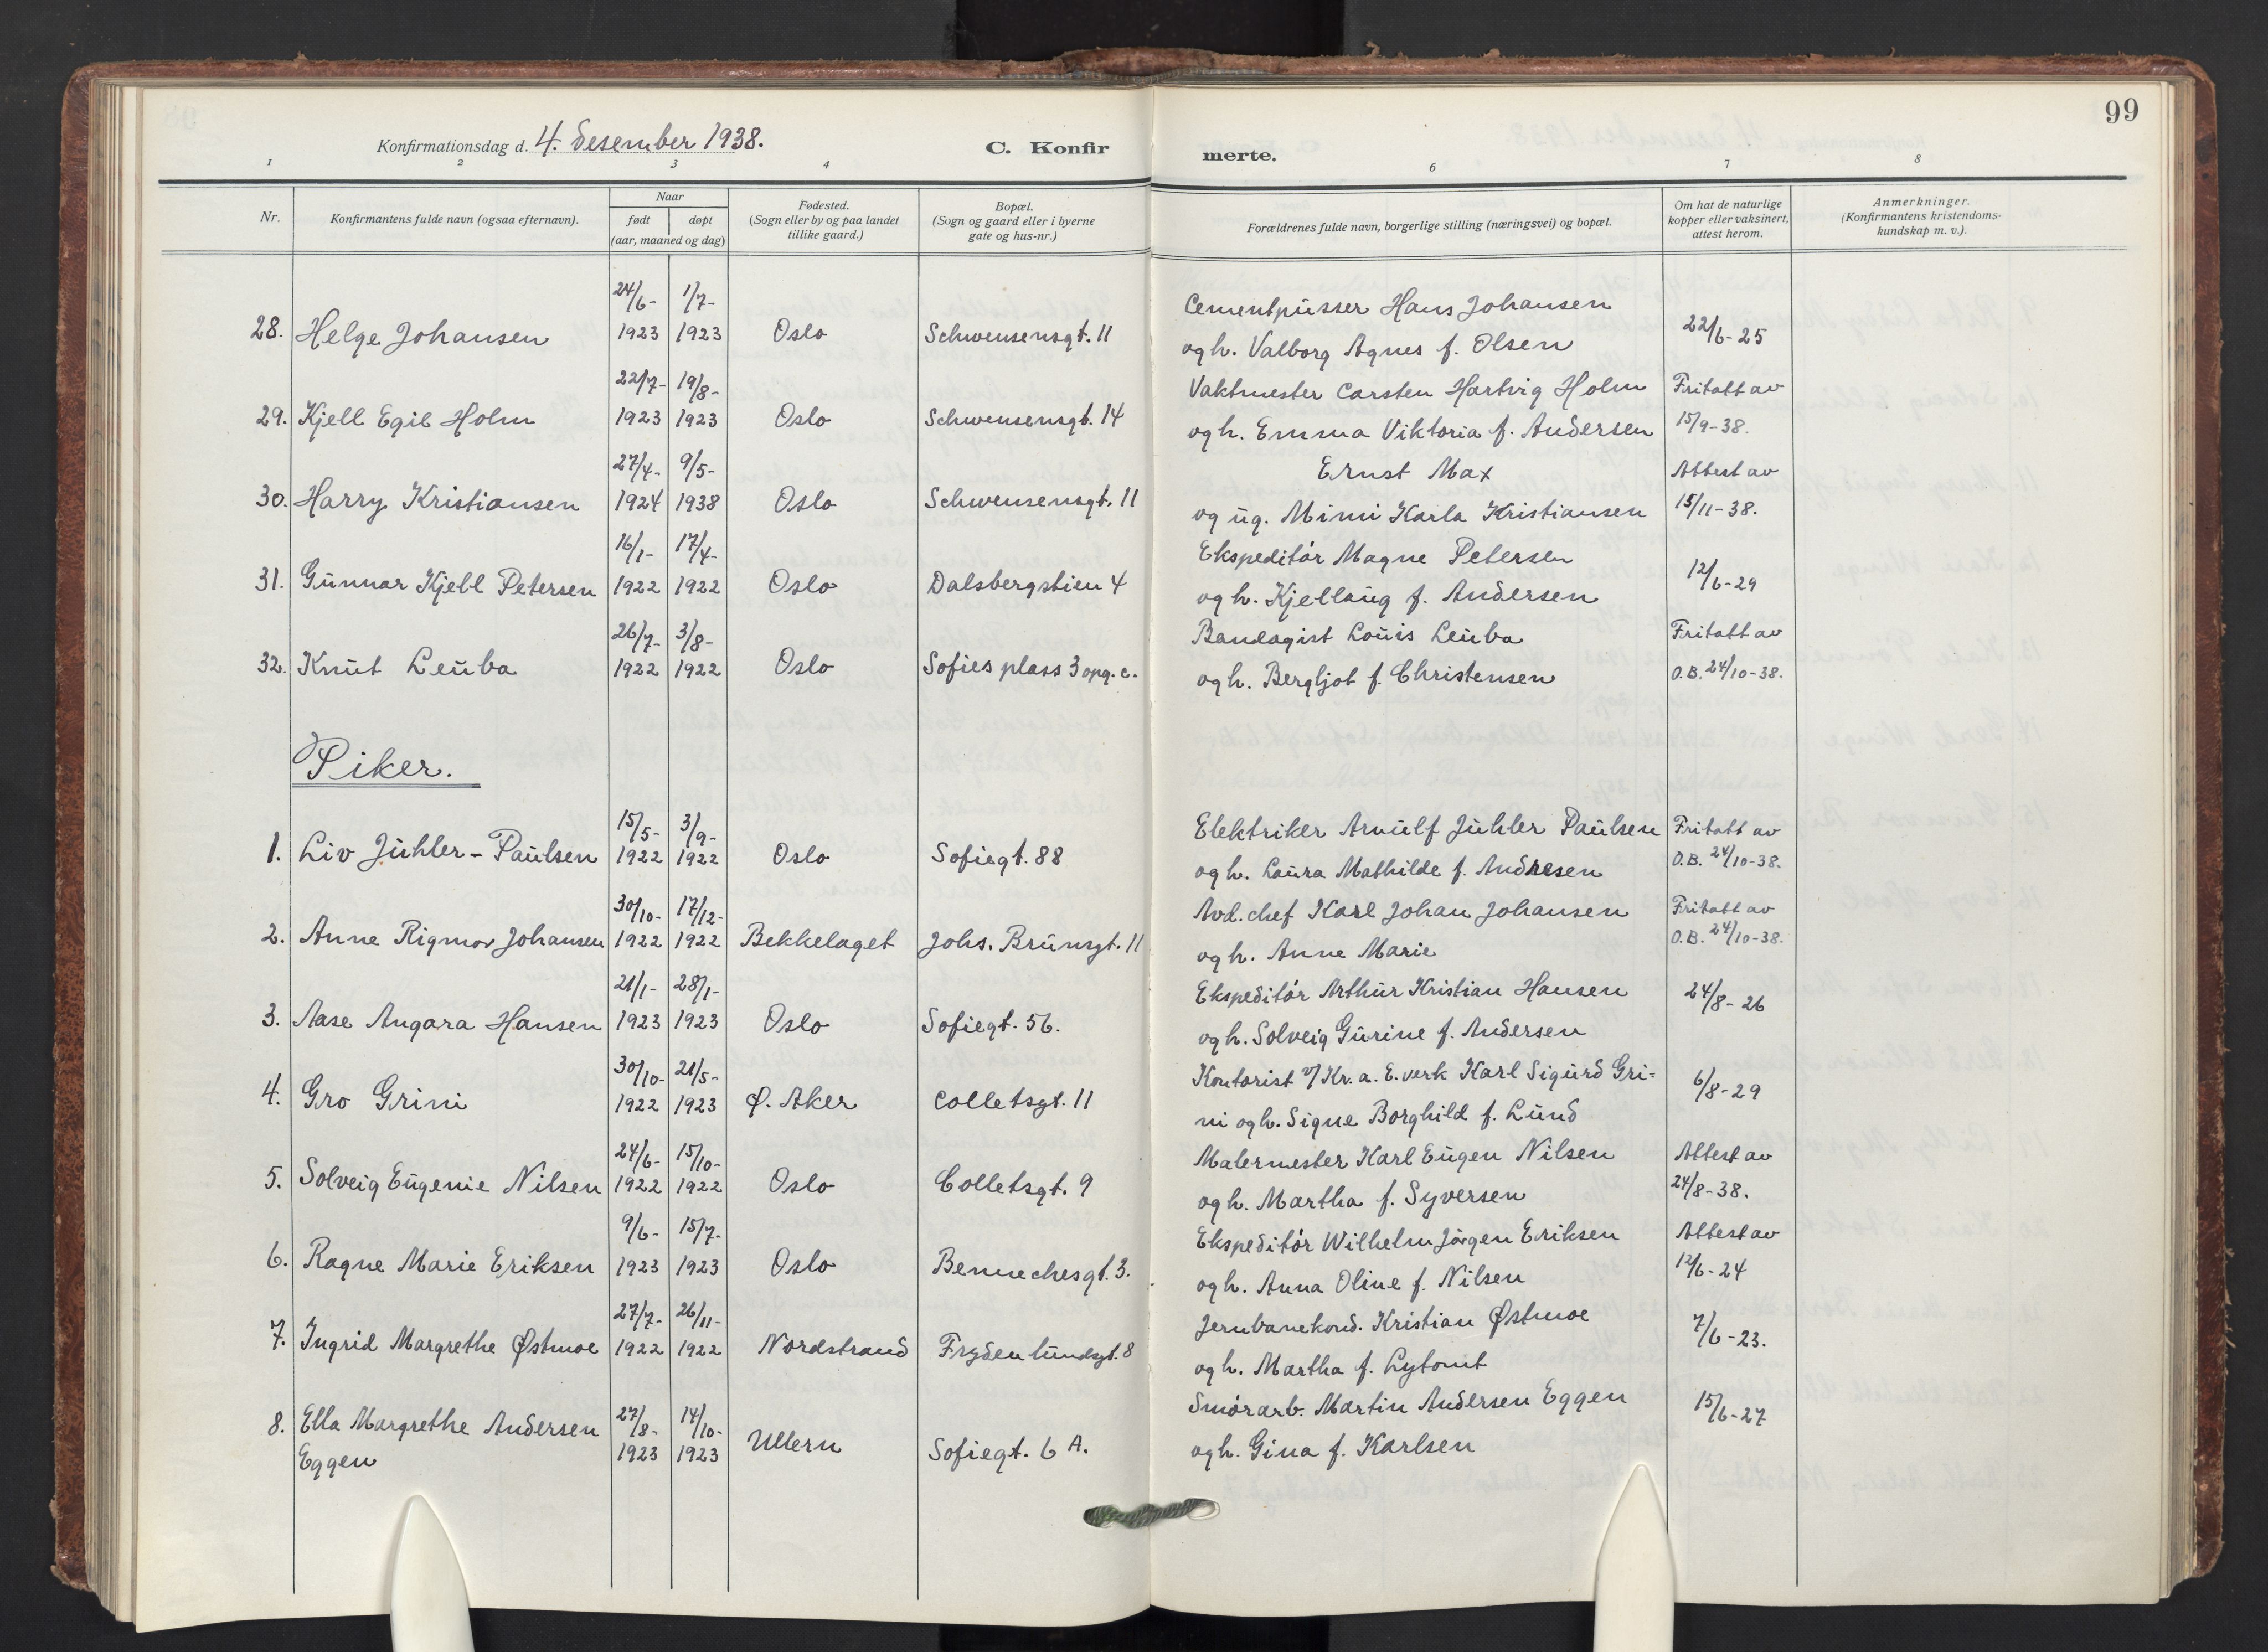 99
Konfirmationsdag d. 4. desember 1938.
C. Konfirmerte.
1 2 3 4 6 7 8
Nr.
Konfirmantens fulde navn (ogsaa efternavn).
Naar
født døpt
(aar, maaned og dag)
Fødested.
(Sogn eller by og paa landet
tillike gaard.)
Bopæl.
(Sogn og gaard eller i byerne
gate og hus-nr.)
Forældrenes fulde navn, borgerlige stilling (næringsvei) og bopæl.
Om hat de naturlige
kopper eller vaksinert,
attest herom.
Anmerkninger.
(Konfirmantens kristendoms-
kundskap m. v.).
24/6- 1/7- Cementpusser Hans Johansen
28. Helge Johansen 1923 1923 Oslo Schwensensgt. 11 og h. Valborg Agnes f. Olsen 22/6-25
22/7- 19/8- Vaktmester Carsten Hartvig Holm Fritatt av
29. Kjell Egil Holm 1923 1923 Oslo Schwensensgt. 14 og h. Emma Viktoria f. Andersen 15/9-38.
27/4- 9/5- Ernst Max Attest av
30. Harry Kristiansen 1924 1938 Oslo Schwensensgt. 11 og ug. Mimi Karla Kristiansen 15/11-38.
16/1- 17/4- Ekspeditór Magne Petersen
31. Gunnar Kjell Petersen 1922 1922 Oslo Dalsbergstien 4 og h. Kjellaug f. Andersen 12/6-29
26/7- 3/8- Bandagist Louis Leuba Fritatt av
32. Knut Leuba 1922 1922 Oslo Sofies plass 3 opg. c. og h. Bergljot f. Christensen O.B. 24/10-38.
Piker.
15/5- 3/9- Elektriker Arnulf Juhler Paulsen Fritatt av
1. Liv Juhler-Paulsen 1922 1922 Oslo Sofiegt. 88 og h. Laura Mathilde f. Andresen O.B. 24/10-38.
30/10- 17/12- Avd. chef Karl Johan Johansen Fritatt av
2. Anne Rigmor Johansen 1922 1922 Bekkelaget Johs. Brunsgt. 11 og h. Anne Marie O.B. 24/10-38.
21/1- 28/1- Ekspeditór Arthur Kristian Hansen
3. Aase Angara Hansen 1923 1923 Oslo Sofiegt. 56. og h. Solveig Gurine f. Andersen 24/8-26
30/10- 21/5- Kontorist v/ Kr.a. E.verk Karl Sigurd Gri=
4. Gro Grini 1922 1923 Ø. Aker Colletsgt. 11 ni og h. Signe Borghild f. Lund 6/8-29
24/6- 15/10- Malermester Karl Eugen Nilsen Attest av
5. Solveig Eugenie Nilsen 1922 1922 Oslo Colletsgt. 9 og h. Martha f. Syversen 24/8-38.
9/6- 15/7- Ekspeditór Wilhelm Jörgen Eriksen Attest av
6. Ragne Marie Eriksen 1923 1923 Oslo Bennechesgt. 3. og h. Anna Oline f. Nilsen 12/6-24
27/7- 26/11- Jernbanekond. Kristian Østmoe
7. Ingrid Margrethe Østmoe 1922 1922 Nordstrand Frydenlundsgt. 8 og h. Martha f. Lytomt 7/6-23.
8. Ella Margrethe Andersen 27/8- 14/10- Smörarb. Martin Andersen Eggen 15/6-27
Eggen 1923 1923 Ullern Sofiegt. 6 A. og h. Gina f. Karlsen